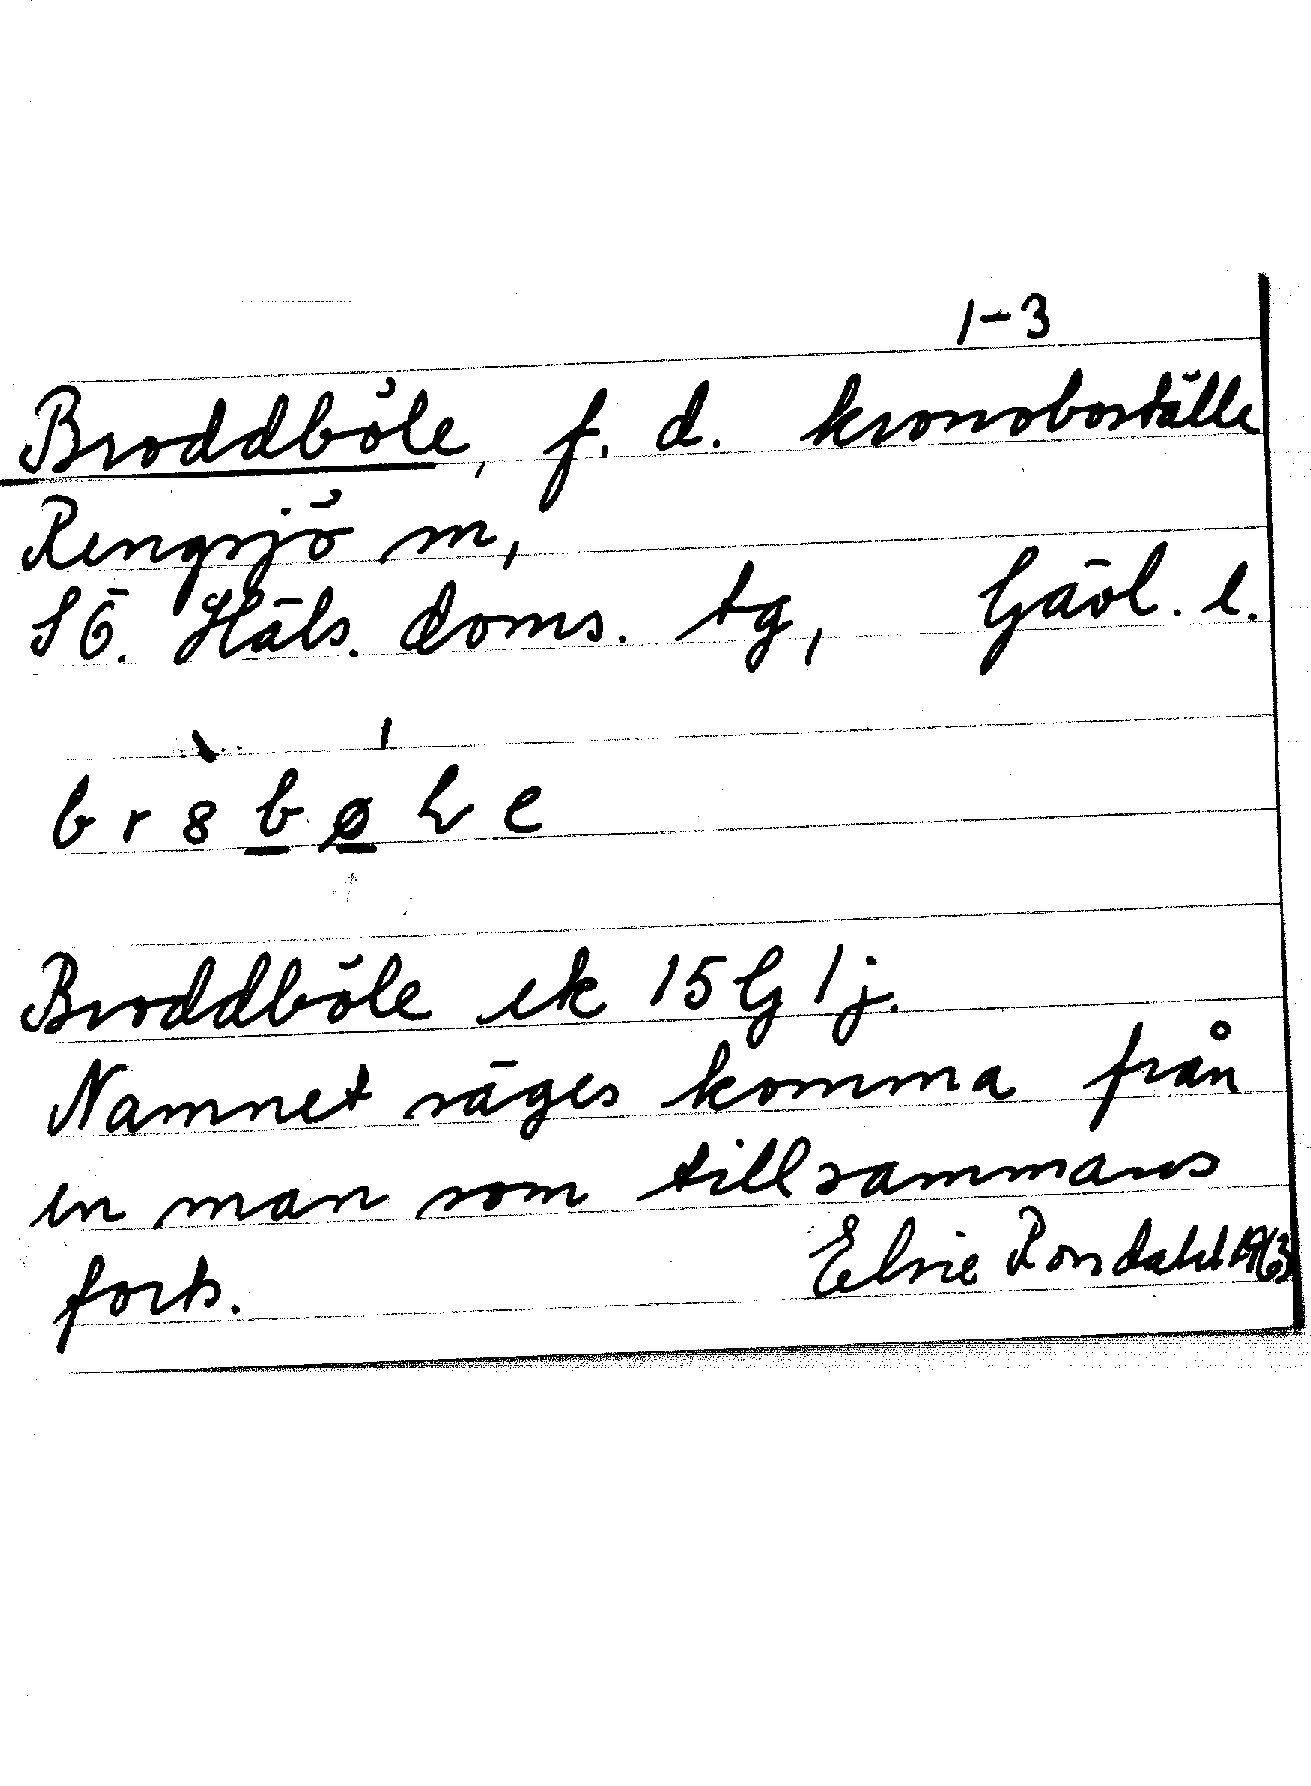 1-3
Broddböle, f. d. kronoboställe
Rengsjö sn,
SÖ. Häls. doms. tg, Gävl. l.
Broddböle ek 15 G 1 j.
Namnet säges komma från
en man som tillsammans
forts. Elsie Rosdahl 1963